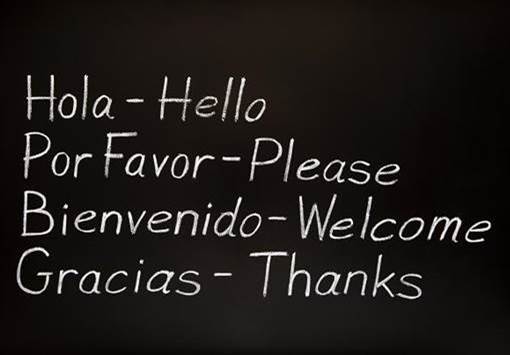 Hola - Hello
Por Favor - Please
Bienvenido - Welcome
Gracias - Thanks